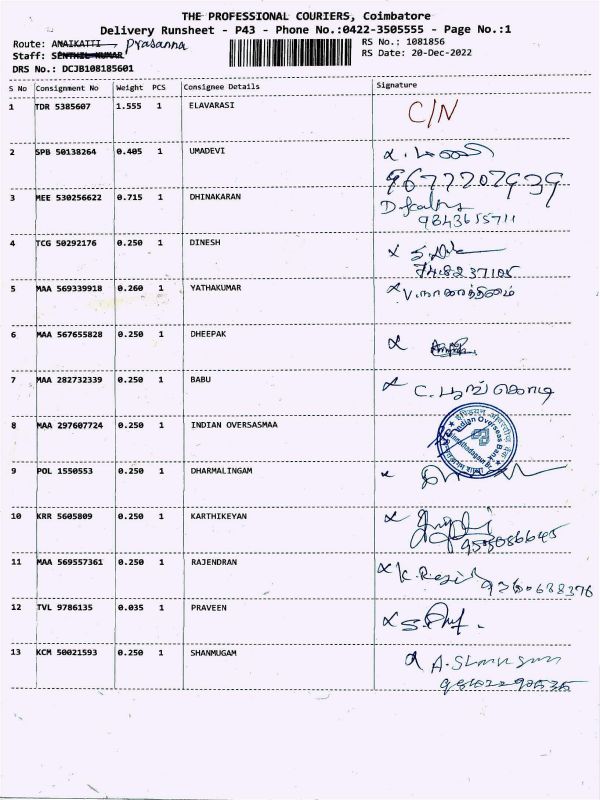 THE PROFESSIONAL COURIERS, Coimbatore
Delivery Runsheet - P43 - Phone No.:0422-3505555 - Page No.:1
Route: ANAIKATTI Prasanna RS No.: 1081856
Staff: SENTHIL KUMAR RS Date: 20-Dec-2022
DRS No.: DCJB108185601
S No Consignment No Weight PCS Consignee Details Signature
1 TDR 5385607 1.555 1 ELAVARASI C/N
2 SPB 50138264 0.405 1 UMADEVI
9677207939
3 MEE 530256622 0.715 1 DHINAKARAN
9843655711
4 TCG 50292176 0.250 1 DINESH
7448237105
5 MAA 569339918 0.260 1 YATHAKUMAR
6 MAA 567655828 0.250 1 DHEEPAK
7 MAA 282732339 0.250 1 BABU C. பூங்கொடி
8 MAA 297607724 0.250 1 INDIAN OVERSASMAA
Indian Overseas Bank
9 POL 1550553 0.250 1 DHARMALINGAM
10 KRR 5605809 0.250 1 KARTHIKEYAN
11 MAA 569557361 0.250 1 RAJENDRAN
9360688376
12 TVL 9786135 0.035 1 PRAVEEN
13 KCM 50021593 0.250 1 SHANMUGAM A. Shanmugam